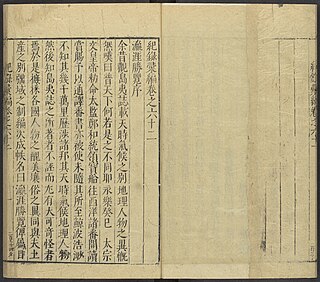 紀錄彙編卷之六十二
瀛涯勝覽序
余昔觀島夷誌載天時氣候之別地理人物之異慨
然嘆曰普天下何若是之不同耶永樂癸巳 太宗
文皇帝勅命太監鄭和統領寶船往西洋諸番開讀
賞賜予以通譯番書亦被使末隨其所至鯨波浩渺
不知其幾千萬里歷涉諸邦其天時氣候地理人物
然後知島夷誌之所著者不誣而尤有大可奇怪者
焉於是採摭各國人物之醜美壤俗之異同與夫土
產之別疆域之制編次成帙名曰瀛涯勝覽俾屬目
紀錄彙編卷之六十二